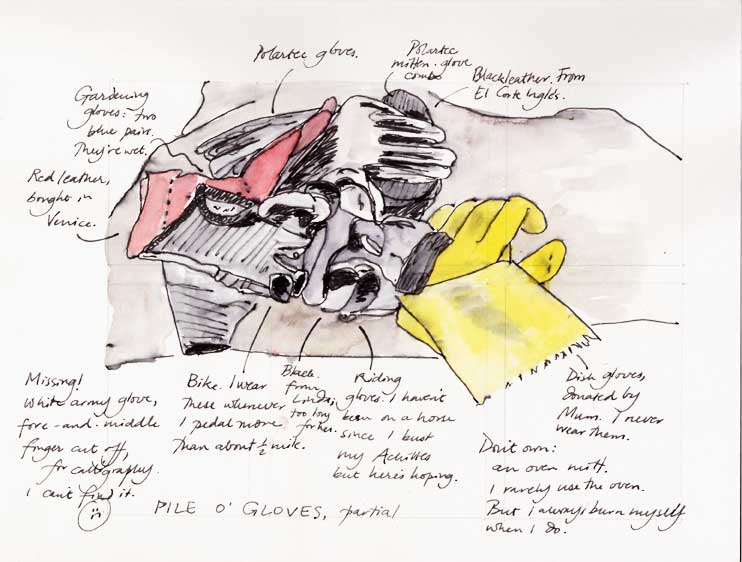 Polartec gloves.
Polartec
mitten-glove
combo
Black leather. From
El Corte Inglés.
Gardening
gloves: two
blue pair.
They're wet.
Red leather,
bought in
Venice.
Missing!
White army glove,
fore-and-middle
finger cut off,
for calligraphy.
I can't find it.
Bike. I wear
these whenever
I pedal more
than about ½ mile.
Black.
from
Linda,
too long
for her.
Riding
gloves. I haven't
been on a horse
since I bust
my Achilles
but here's hoping.
Dish gloves,
donated by
Mum. I never
wear them.
Don't own:
an oven mitt.
I rarely use the oven.
But I always burn myself
when I do.
PILE O' GLOVES, partial